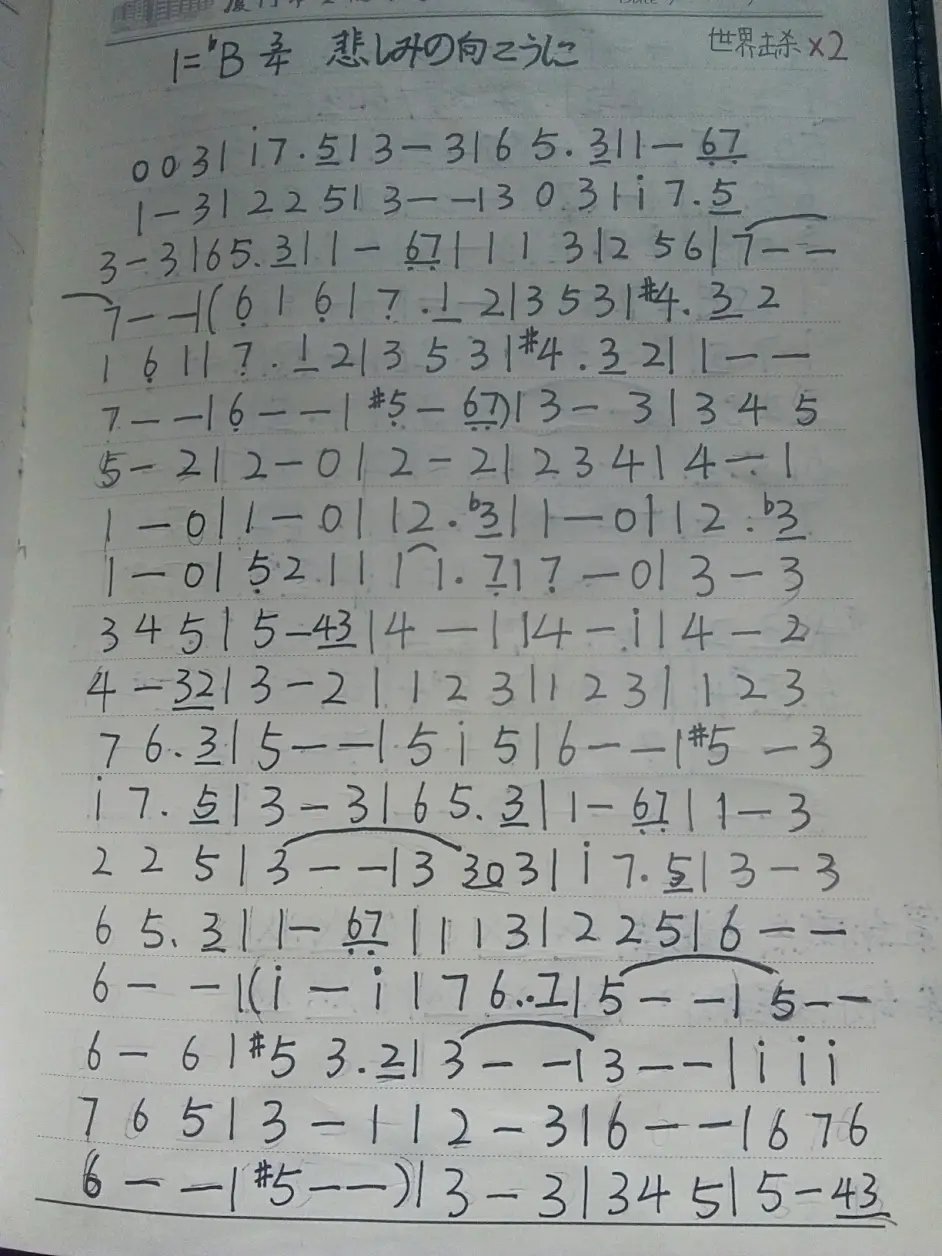 1=♭B 3/4 悲しみの向こうに 世界击杀×2
0 0 3 | i 7 . 5 | 3 - 3 | 6 5 . 3 | 1 - 67
1 - 3 | 2 2 5 | 3 - - | 3 0 3 | i 7 . 5
3 - 3 | 6 5 . 3 | 1 - 67 | 1 1 3 | 2 5 6 | 7 - -
7 - - | ( 6 1 6 | 7 . 1 2 | 3 5 3 | #4 . 3 2
1 6 1 | 7 . 1 2 | 3 5 3 | #4 . 3 2 | 1 - -
7 - - | 6 - - | #5 - 67 ) | 3 - 3 | 3 4 5
5 - 2 | 2 - 0 | 2 - 2 | 2 3 4 | 4 - 1
1 - 0 | 1 - 0 | 1 2 . ♭3 | 1 - 0 | 1 2 . ♭3
1 - 0 | 5 2 1 | 1 1 . 7 | 7 - 0 | 3 - 3
3 4 5 | 5 - 43 | 4 - 1 | 4 - i | 4 - 2
4 - 32 | 3 - 2 | 1 2 3 | 1 2 3 | 1 2 3
7 6 . 3 | 5 - - | 5 i 5 | 6 - - | #5 - 3
i 7 . 5 | 3 - 3 | 6 5 . 3 | 1 - 67 | 1 - 3
2 2 5 | 3 - - | 3 30 3 | i 7 . 5 | 3 - 3
6 5 . 3 | 1 - 67 | 1 1 3 | 2 2 5 | 6 - -
6 - - | ( i - i | 7 6 . . 1 | 5 - - | 5 - -
6 - 6 | #5 3 . 2 | 3 - - | 3 - - | i i i
7 6 5 | 3 - 1 | 2 - 3 | 6 - - | 6 7 6
6 - - | #5 - - ) | 3 - 3 | 3 4 5 | 5 - 43